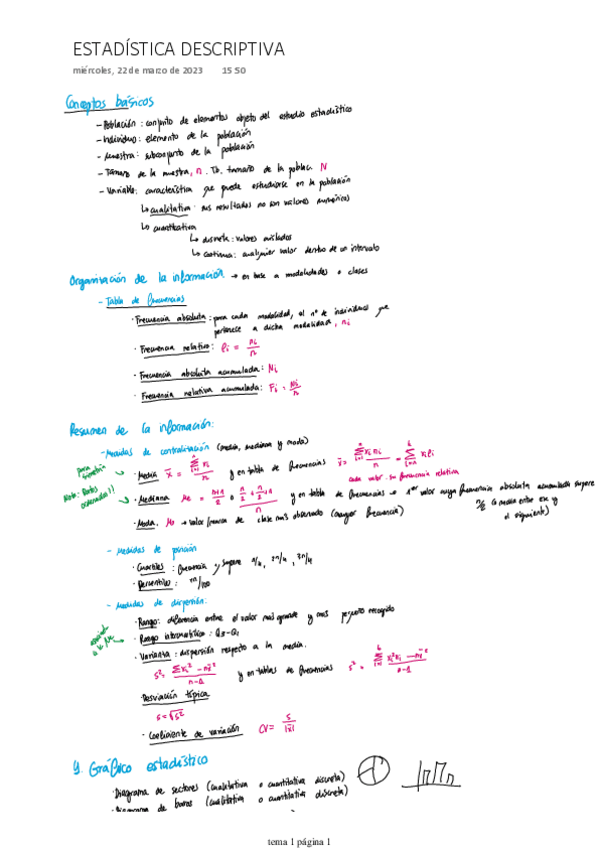 ESTADÍSTICA DESCRIPTIVA
miércoles, 22 de marzo de 2023 15:50
Conceptos básicos
- Población: conjunto de elementos objeto del estudio estadístico
- Individuo: elemento de la población
- Muestra: subconjunto de la población
- Tamaño de la muestra, n. Tb. tamaño de la poblac. N
- Variable: característica que puede estudiarse en la población
↳ cualitativa: sus resultados no son valores numéricos
↳ cuantitativa
↳ discreta: valores aislados
↳ continua: cualquier valor dentro de un intervalo
Organización de la información → en base a modalidades o clases
- Tabla de frecuencias
· Frecuencia absoluta: para cada modalidad, al nº de individuos que
pertenece a dicha modalidad, ni
· Frecuencia relativa: fi = ni/n
· Frecuencia absoluta acumulada: Ni
· Frecuencia relativa acumulada: Fi = Ni/n
Resumen de la información:
- Medidas de centralización (media, mediana y moda)
· Media x̄ = Σxi/n y en tabla de frecuencias x̄ = Σxini/n = Σxifi
cada valor · su frecuencia relativa
Nota: Datos ordenados!!
· Mediana Me = y en tabla de frecuencias → 1er valor cuya frecuencia absoluta acumulada supere
n/2 (o media entre ese y
el siguiente)
· Moda, Mo → valor/marca de clase más observado (mayor frecuencia)
- Medidas de posición
· Cuartiles: frecuencia y supere n/4, 2n/4, 3n/4
· Percentiles: /100
- Medidas de dispersión:
· Rango: diferencia entre el valor más grande y más pequeño recogido
· Rango intercuartílico: Q3-Q1
· Varianza: dispersión respecto a la media.
s² = Σxi² - nx̄² / n-1 y en tablas de frecuencias s² =
· Desviación típica
s = √s²
· Coeficiente de variación CV = s/|x̄|
Gráfico estadístico
· Diagrama de sectores (cualitativa o cuantitativa discreta)
· Diagrama de barras (cualitativa o cuantitativa discreta)
tema 1 página 1